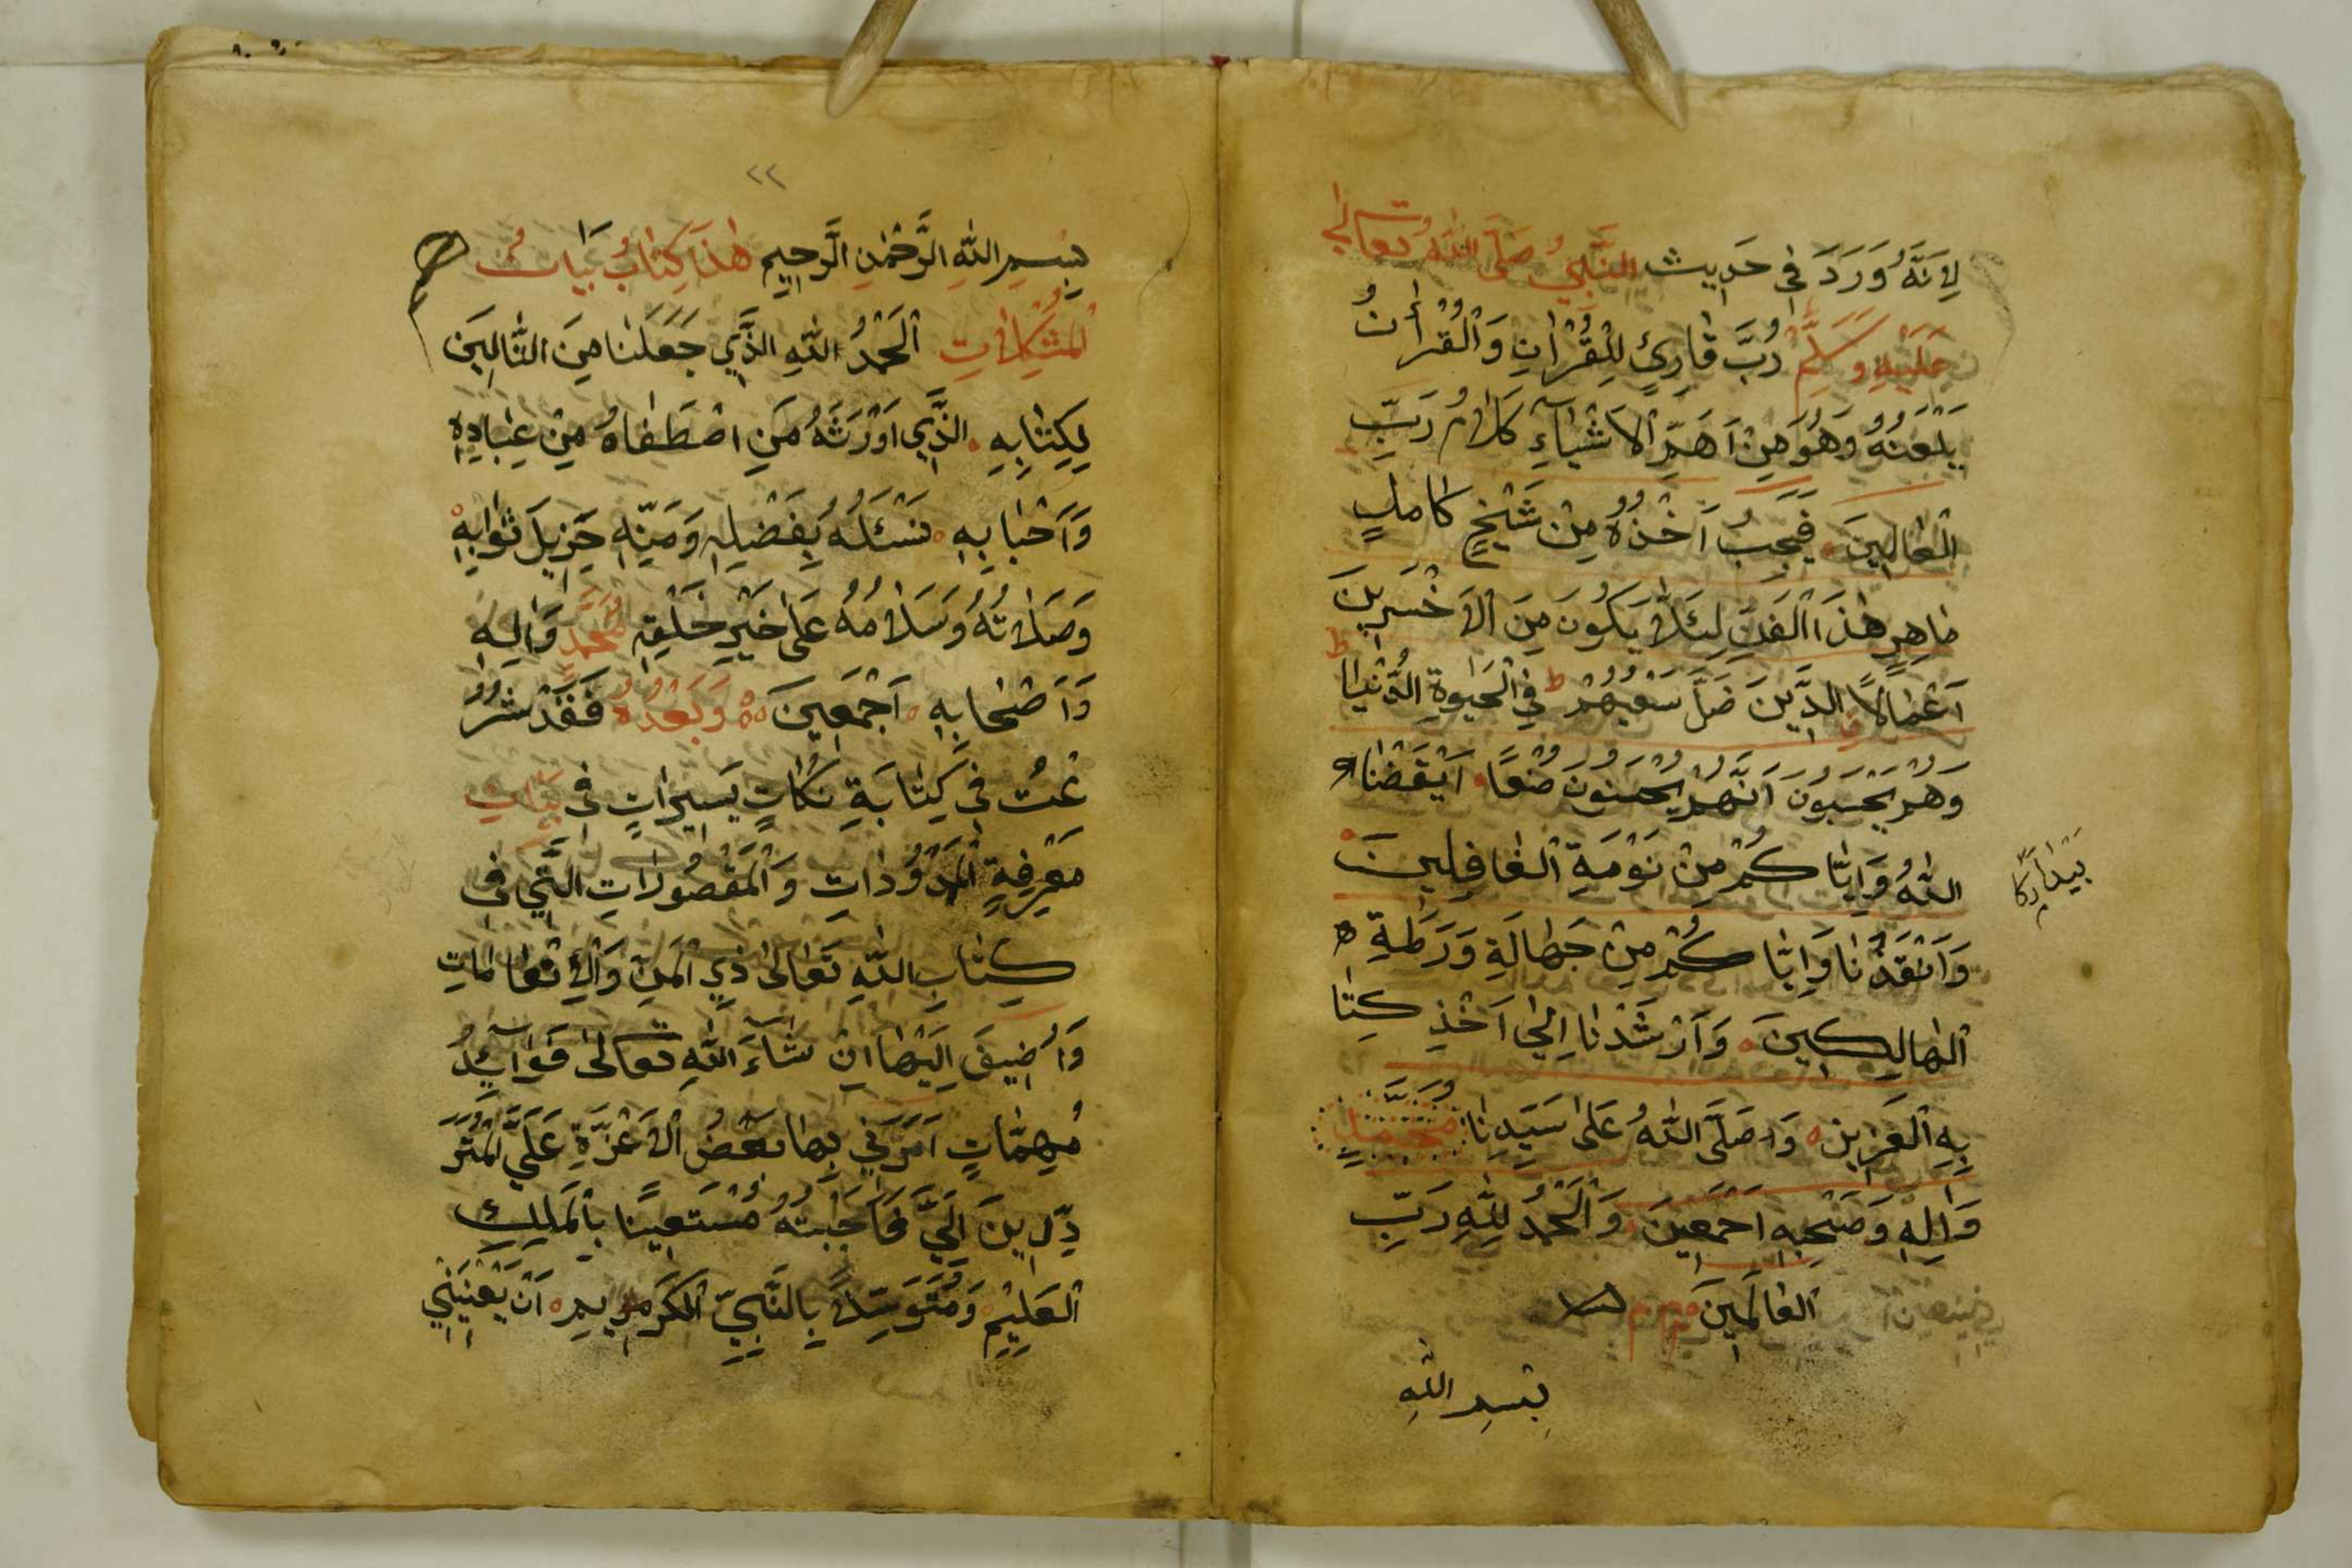 لِاَنَّهُ وَرَدَ فِي حَدِيث النَّبِيُ صَلَّى اللّٰهُ تعالىٰ
عَلَيْهِ وَسَلَّمْ رُبَّ قَارِئٍ لِلْقُرْاٰنِ وَالْقُرْاٰنُ
يَلْعَنُهُ وَهُوَ مِنْ اَهَمِّ الْاَشْيَآءِ كَلَامُ رَبِّ
الْعَالَمِينَ فَيَجِبُ اَخْذُهُ مِنْ شَيْخٍ كَامِلٍ
مَاهِرٍ هٰذَا الْفَنِّ لِئَلَّا يَكُونَ مِنَ الْاَخْسَرِينَ
اَعْمَالًا الَّذِينَ ضَلَّ سَعْيُهُمْ فِي الْحَيٰوةِ الدُّنْيَا
وَهُمْ يَحْسَبُونَ اَنَّهُمْ يُحْسِنُونَ صُنْعًا اَيْقَضْنَا
اللّٰهُ وَاِيَّاكُمْ مِنْ نَوْمَةِ الْغَافِلِينَ
وَاَنْقَذْنَا وَاِيَّاكُمْ مِنْ جَهَالَةِ وَرَطَةِ
الْهَالِكِينَ وَاَرْشَدْنَا اِلَى اَخْذِ كِتَا
بِهِ الْعَزِيزِ وَصَلَّى اللّٰهُ عَلٰى سَيِّدِنَا مُحَمَّدٍ
وَاٰلِهِ وَصَحْبِهِ اَجْمَعِينَ وَالْحَمْدُ لِلّٰهِ رَبِّ
الْعَالَمِينَ
بِسْمِ اللّٰهِ
٢٢
بِسْمِ اللّٰهِ الرَّحْمٰنِ الرَّحِيمِ هٰذَا كِتَابُ بَيَانُ
الْمُشْكِلَاتِ اَلْحَمْدُ لِلّٰهِ الَّذِي جَعَلَنَا مِنَ التَّالِينَ
لِكِتَابِهِ الَّذِي اَوْرَثَهُ مَنِ اصْطَفَاهُ مِنْ عِبَادِهِ
وَاَحْبَابِهِ نَسْئَلُهُ بِفَضْلِهِ وَمَنِّهِ جَزِيلَ ثَوَابِهِ
وَصَلَاتُهُ وَسَلَامُهُ عَلٰى خَيْرِ خَلْقِهِ مُحَمَّدٍ وَاٰلِهِ
وَاَصْحَابِهِ اَجْمَعِينَ وَبَعْدُ فَقَدْ شَرَ
عْتُ فِي كِتَابَةِ نِكَاتٍ يَسِيرَاتٍ فِي بَيَانِ
مَعْرِفَةِ الْمَمْدُودَاتِ وَالْمَقْصُورَاتِ الَّتِي فِي
كِتَابِ اللّٰهِ تَعَالٰى ذِي الْمَنِّ وَالْاِنْعَامَاتِ
وَاُضِيفَ اِلَيْهَا اِنْ شَآءَ اللّٰهِ تعالىٰ فَوَائِدُ
مُهِمَّاتٍ اَمَرَنِي بِهَا بَعْضُ الْاَعِزَّةِ عَلَيَّ الْمُتَرَ
دِّدِينَ اِلَيَّ فَاَجَبْتُهُ مُسْتَعِينًا بِالْمَلِكِ
الْعَلِيْمِ وَمُتَوَسِّلًا بِالنَّبِيِّ الْكَرِيمِ اَنْ يُعْنِيَنِي